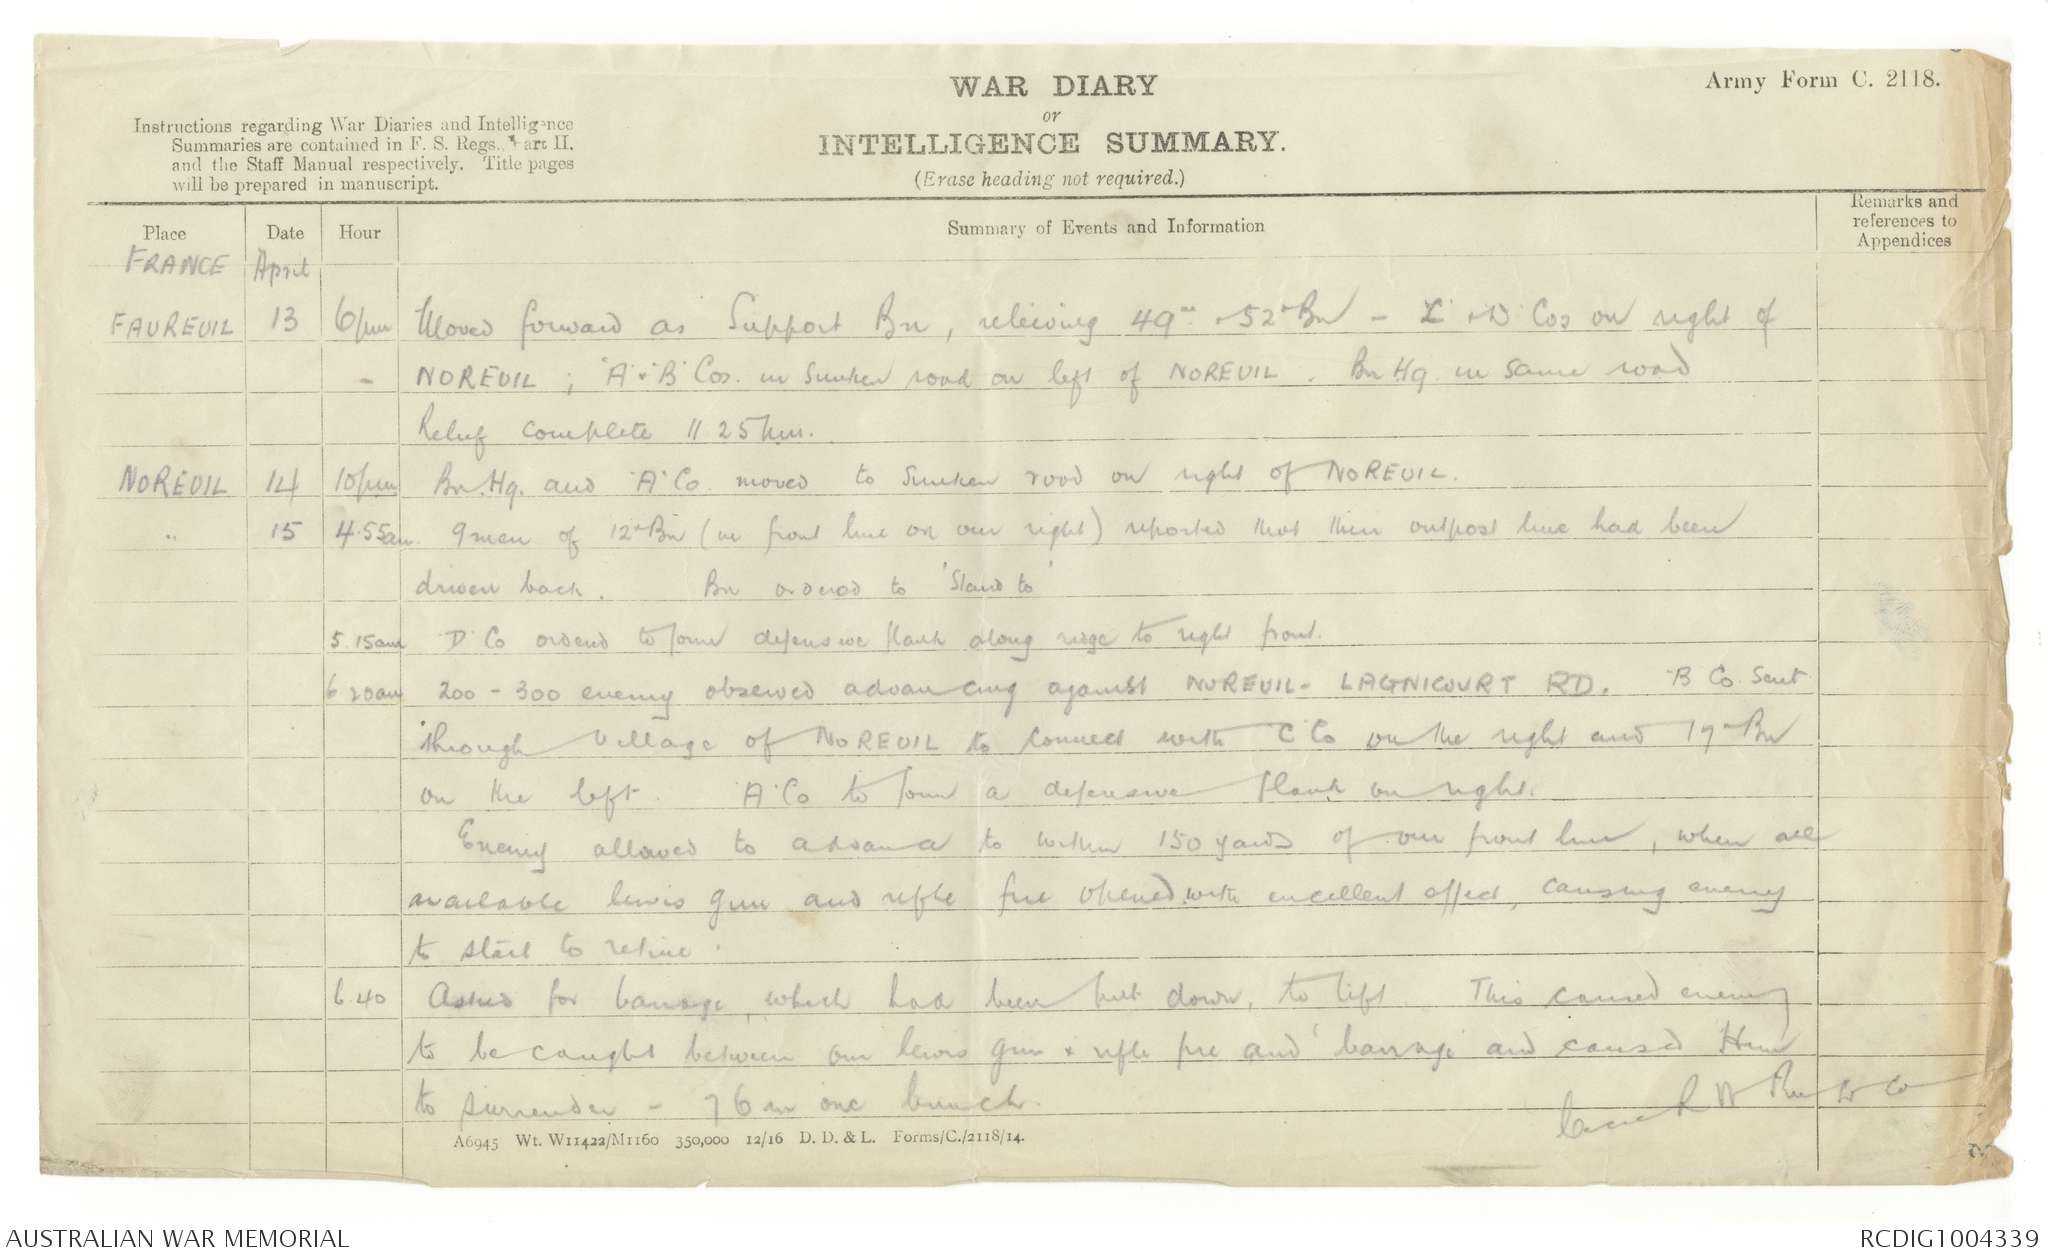 WAR DIARY
or
INTELLIGENCE SUMMARY.
(Erase heading not required.)
Army Form C. 2118.
Instructions regarding War Diaries and Intelligence
Summaries are contained in F. S. Regs., Part II.
and the Staff Manual respectively. Title pages
will be prepared in manuscript.
Place Date Hour Summary of Events and Information Remarks and references to Appendices
FRANCE April
FAVREUIL 13 6pm Moved forward as Support Bn, relieving 49th + 52nd Bn – C + D Cos on right of
NOREUIL ; 'A' + 'B' Cos. in Sunken road on left of NOREUIL. Bn Hq. in same road
Relief complete 11 25pm.
NOREUIL 14 10pm Bn. Hq. and 'A' Co. moved to Sunken road on right of NOREUIL.
" 15 4.55am 9 men of 12th Bn (in front line on our right) reported that their outpost line had been
driven back. Bn ordered to 'Stand to'
5.15am 'D' Co ordered to form defensive flank along ridge to right front.
6 20am 200 – 300 enemy observed advancing against NOREUIL – LAGNICOURT RD. 'B' Co. sent
through village of NOREUIL to connect with 'C' Co on the right and 17th Bn
on the left. 'A' Co to form a defensive flank on right.
Enemy allowed to advance to within 150 yards of our front line, when all
available lewis gun and rifle fire opened with excellent effect, causing enemy
to start to retire.
6.40 Asked for barrage, which had been put down, to lift. This caused enemy
to be caught between our lewis gun + rifle fire and barrage and caused them
to surrender – 76 in one bunch.
A6945 Wt. W11422/M1160 350,000 12/16 D. D. & L. Forms/C./2118/14.
AUSTRALIAN WAR MEMORIAL
RCDIG1004339